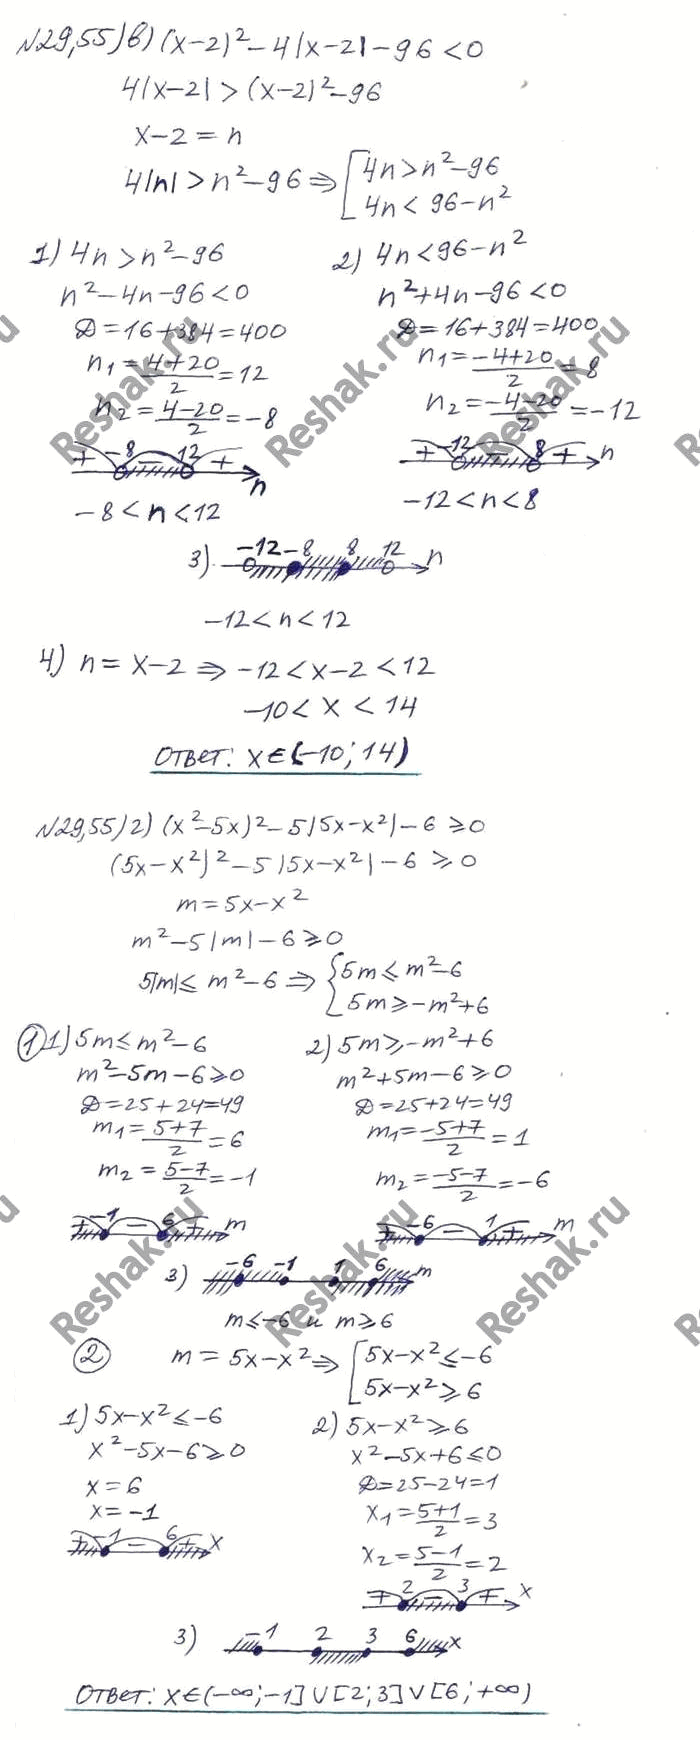 №29,55) в) (x-2)² - 4|x-2| - 96 < 0
4|x-2| > (x-2)² - 96
x-2 = n
4|n| > n² - 96 ⇒ [ 4n > n² - 96
4n < 96 - n²
1) 4n > n² - 96
n² - 4n - 96 < 0
D = 16 + 384 = 400
n₁ = (4+20)/2 = 12
n₂ = (4-20)/2 = -8
+ -8 - 12 + n
-8 < n < 12
2) 4n < 96 - n²
n² + 4n - 96 < 0
D = 16 + 384 = 400
n₁ = (-4+20)/2 = 8
n₂ = (-4-20)/2 = -12
+ -12 - 8 + n
-12 < n < 8
3) -12 -8 8 12 n
-12 < n < 12
4) n = x-2 ⇒ -12 < x-2 < 12
-10 < x < 14
Ответ: x∈(-10; 14)
№29,55) г) (x²-5x)² - 5|5x-x²| - 6 ≥ 0
(5x-x²)² - 5|5x-x²| - 6 ≥ 0
m = 5x-x²
m² - 5|m| - 6 ≥ 0
5|m| ≤ m² - 6 ⇒ { 5m ≤ m² - 6
5m ≥ -m² + 6
① 1) 5m ≤ m² - 6
m² - 5m - 6 ≥ 0
D = 25 + 24 = 49
m₁ = (5+7)/2 = 6
m₂ = (5-7)/2 = -1
+ -1 - 6 + m
2) 5m ≥ -m² + 6
m² + 5m - 6 ≥ 0
D = 25 + 24 = 49
m₁ = (-5+7)/2 = 1
m₂ = (-5-7)/2 = -6
+ -6 - 1 + m
3) -6 -1 1 6 m
m ≤ -6 и m ≥ 6
② m = 5x-x² ⇒ [ 5x-x² ≤ -6
5x-x² ≥ 6
1) 5x-x² ≤ -6
x² - 5x - 6 ≥ 0
x = 6
x = -1
+ -1 - 6 + x
2) 5x-x² ≥ 6
x² - 5x + 6 ≤ 0
D = 25 - 24 = 1
x₁ = (5+1)/2 = 3
x₂ = (5-1)/2 = 2
+ 2 - 3 + x
3) -1 2 3 6 x
Ответ: x∈(-∞; -1] ∪ [2; 3] ∪ [6; +∞)
Reshak.ru
Reshak.ru
Reshak.ru
Reshak.ru
Reshak.ru
Reshak.ru